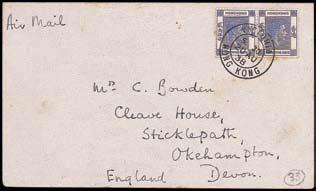 Air Mail
HONGKONG HONGKONG
VICTORIA
38
HONG KONG
Mrs C. Bowden
Cleave House,
Sticklepath,
Okehampton,
England Devon.
35